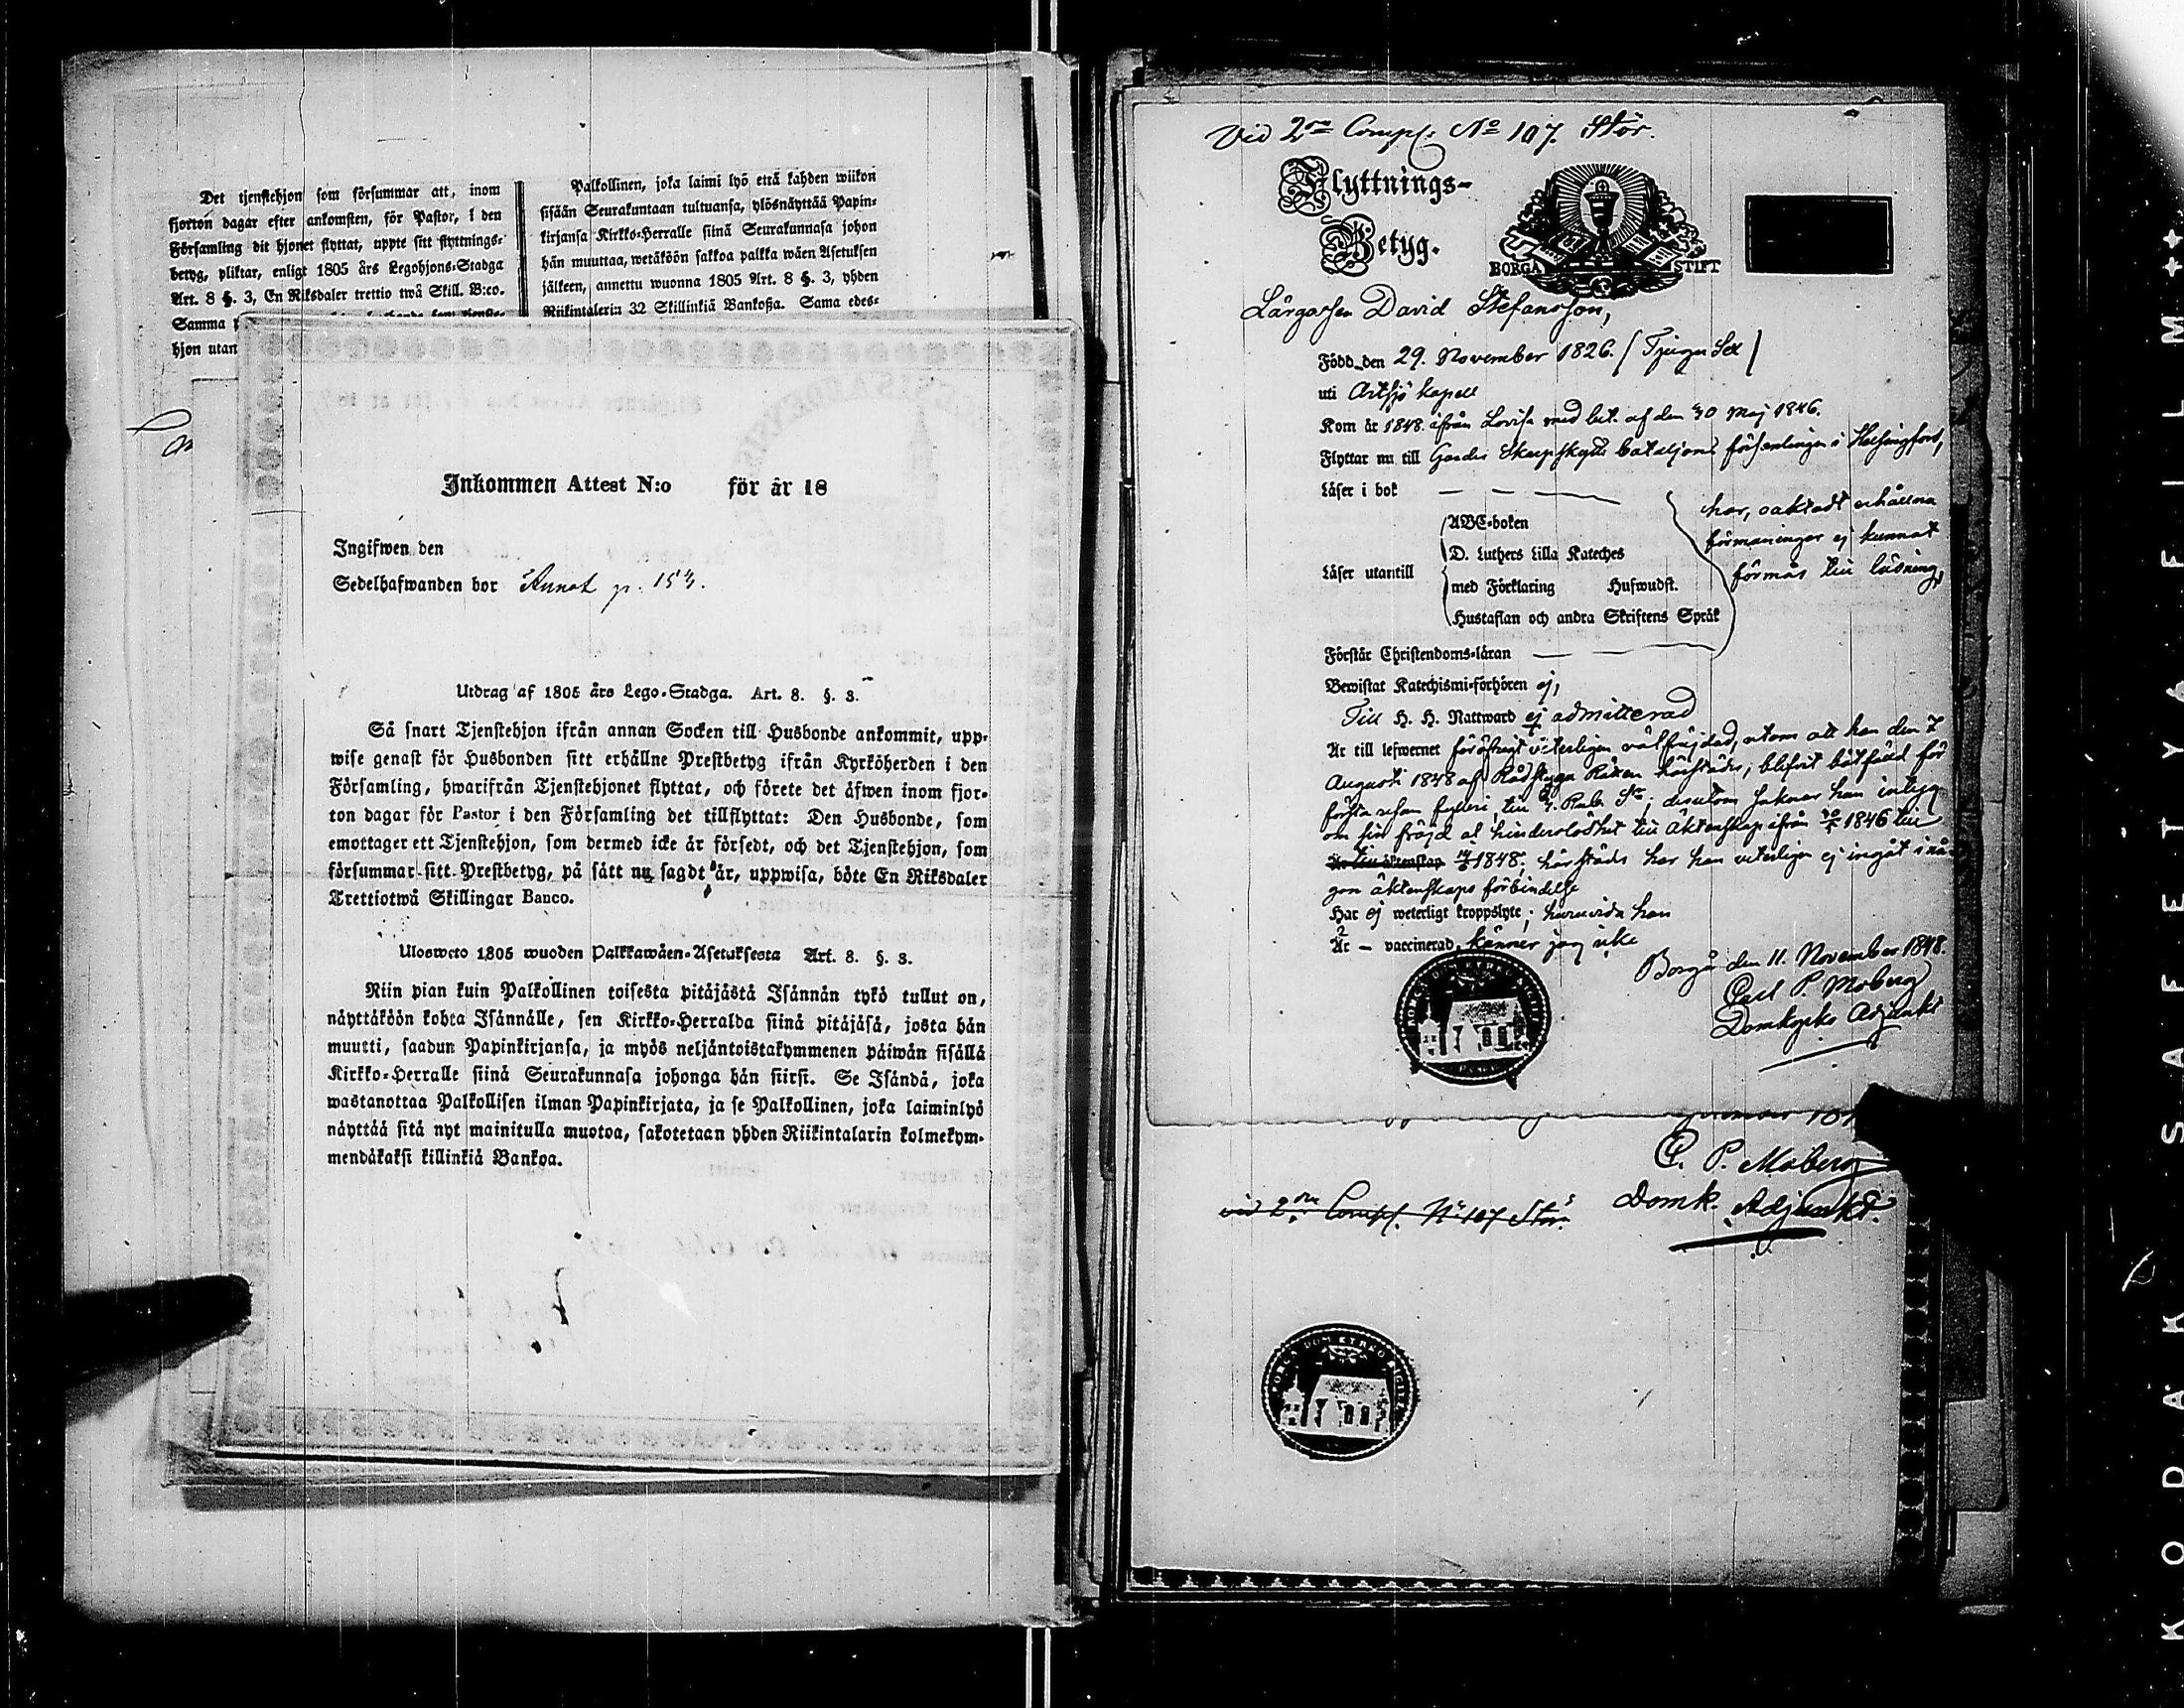 Det tjenstehjon som försummar att, inom
fjorton dagar efter ankomsten, för Pastor, i den
Församling dit hjonet flyttat, uppte sitt flyttnings-
betyg, pliktar, enligt 1805 års Legohjons-Stadga
Art. 8 §. 3, En Riksdaler trettio twå Skill. B:co.
Samma
hjon utan
Palkollinen, joka laimi lyö että kahden wiikon
sisään Seurakuntaan tultuansa, ylösnäyttää Papin-
kirjansa Kirkko-Herralle siinä Seurakunnasa johon
hän muuttaa, wetäköön sakkoa palkka wäen Asetuksen
jälkeen, annettu wuonna 1805 Art. 8 §. 3, yhden
Riikintalerin 32 Skillinkiä Bankoßa. Sama edes-
Inkommen Attest N:o för år 18
Ingifwen den
Sedelhafwanden bor Annat p. 153.
Utdrag af 1805 års Lego-Stadga. Art. 8. §. 3.
Så snart Tjenstehjon ifrån annan Socken till Husbonde ankommit, upp-
wise genast för Husbonden sitt erhållne Prestbetyg ifrån Kyrköherden i den
Församling, hwarifrån Tjenstehjonet flyttat, och förete det äfwen inom fjor-
ton dagar för Pastor i den Församling det tillflyttat: Den Husbonde, som
emottager ett Tjenstehjon, som dermed icke är försedt, och det Tjenstehjon, som
försummar sitt Prestbetyg, på sätt nu sagdt är, uppwisa, böte En Riksdaler
Trettiotwå Skillingar Banco.
Ulosweto 1805 wuoden Palkkawäen-Asetuksesta Art. 8. §. 3.
Niin pian kuin Palkollinen toisesta pitäjästä Isännän tykö tullut on,
näyttäköön kohta Isännälle, sen Kirkko-Herralda siinä pitäjäsä, josta hän
muutti, saadun Papinkirjansa, ja myös neljäntoistakymmenen päiwän sisällä
Kirkko-Herralle siinä Seurakunnasa johonga hän siirsi. Se Isändä, joka
wastanottaa Palkollisen ilman Papinkirjata, ja se Palkollinen, joka laiminlyö
näyttää sitä nyt mainitulla muotoa, sakotetaan yhden Riikintalarin kolmekym-
mendäkaksi killinkiä Bankoa.
Vid 2ra Comp. No 107. Stör.
Flyttnings-
Betyg.
BORGÅ STIFT
David Stefansson,
Född den 29. November 1826.
uti Artsjö kapell
Kom år 1848. ifrån Lovisa med bet. af den 30 Maj 1846.
Flyttar nu till Gardes Skarpskytte bataljons församlingen i Helsingfors,
Läser i bok
har, oaktadt erhållna
förmaningar ej kunnat
förmås till läsning,
Läser utantill
ABC-boken
D. Luthers Lilla Kateches
med Förklaring Hufwudst.
Hustaflan och andra Skriftens Språk
Förstår Christendoms-läran
Bewistat Katechismi-förhören ej,
Till H. H. Nattward ej admitterad
Är till lefwernet föröfrigt veterligen välfräjdad, utom att han den 7
Augusti 1848 af Rådstugu Rätten härstädes, blifvit bötfäld för
första resan dessutom saknar han intyg
om sin fräjd och hinderslöshet till äktenskap ifrån 1846 till
1848; härstädes har han veterligen ej ingått i nå-
gon äktenskaps förbindelse
Har ej weterligt kroppslyte; huruvida han
Är – vaccinerad, känner jag icke
Borgå den 11. November 1848.
Carl P. Moberg
Domkyrko Adjunkt
C. P. Moberg
Domk. Adjunkt.
vid 2ra Comp. No 107 Stör.
KODAK SAFETY FILM